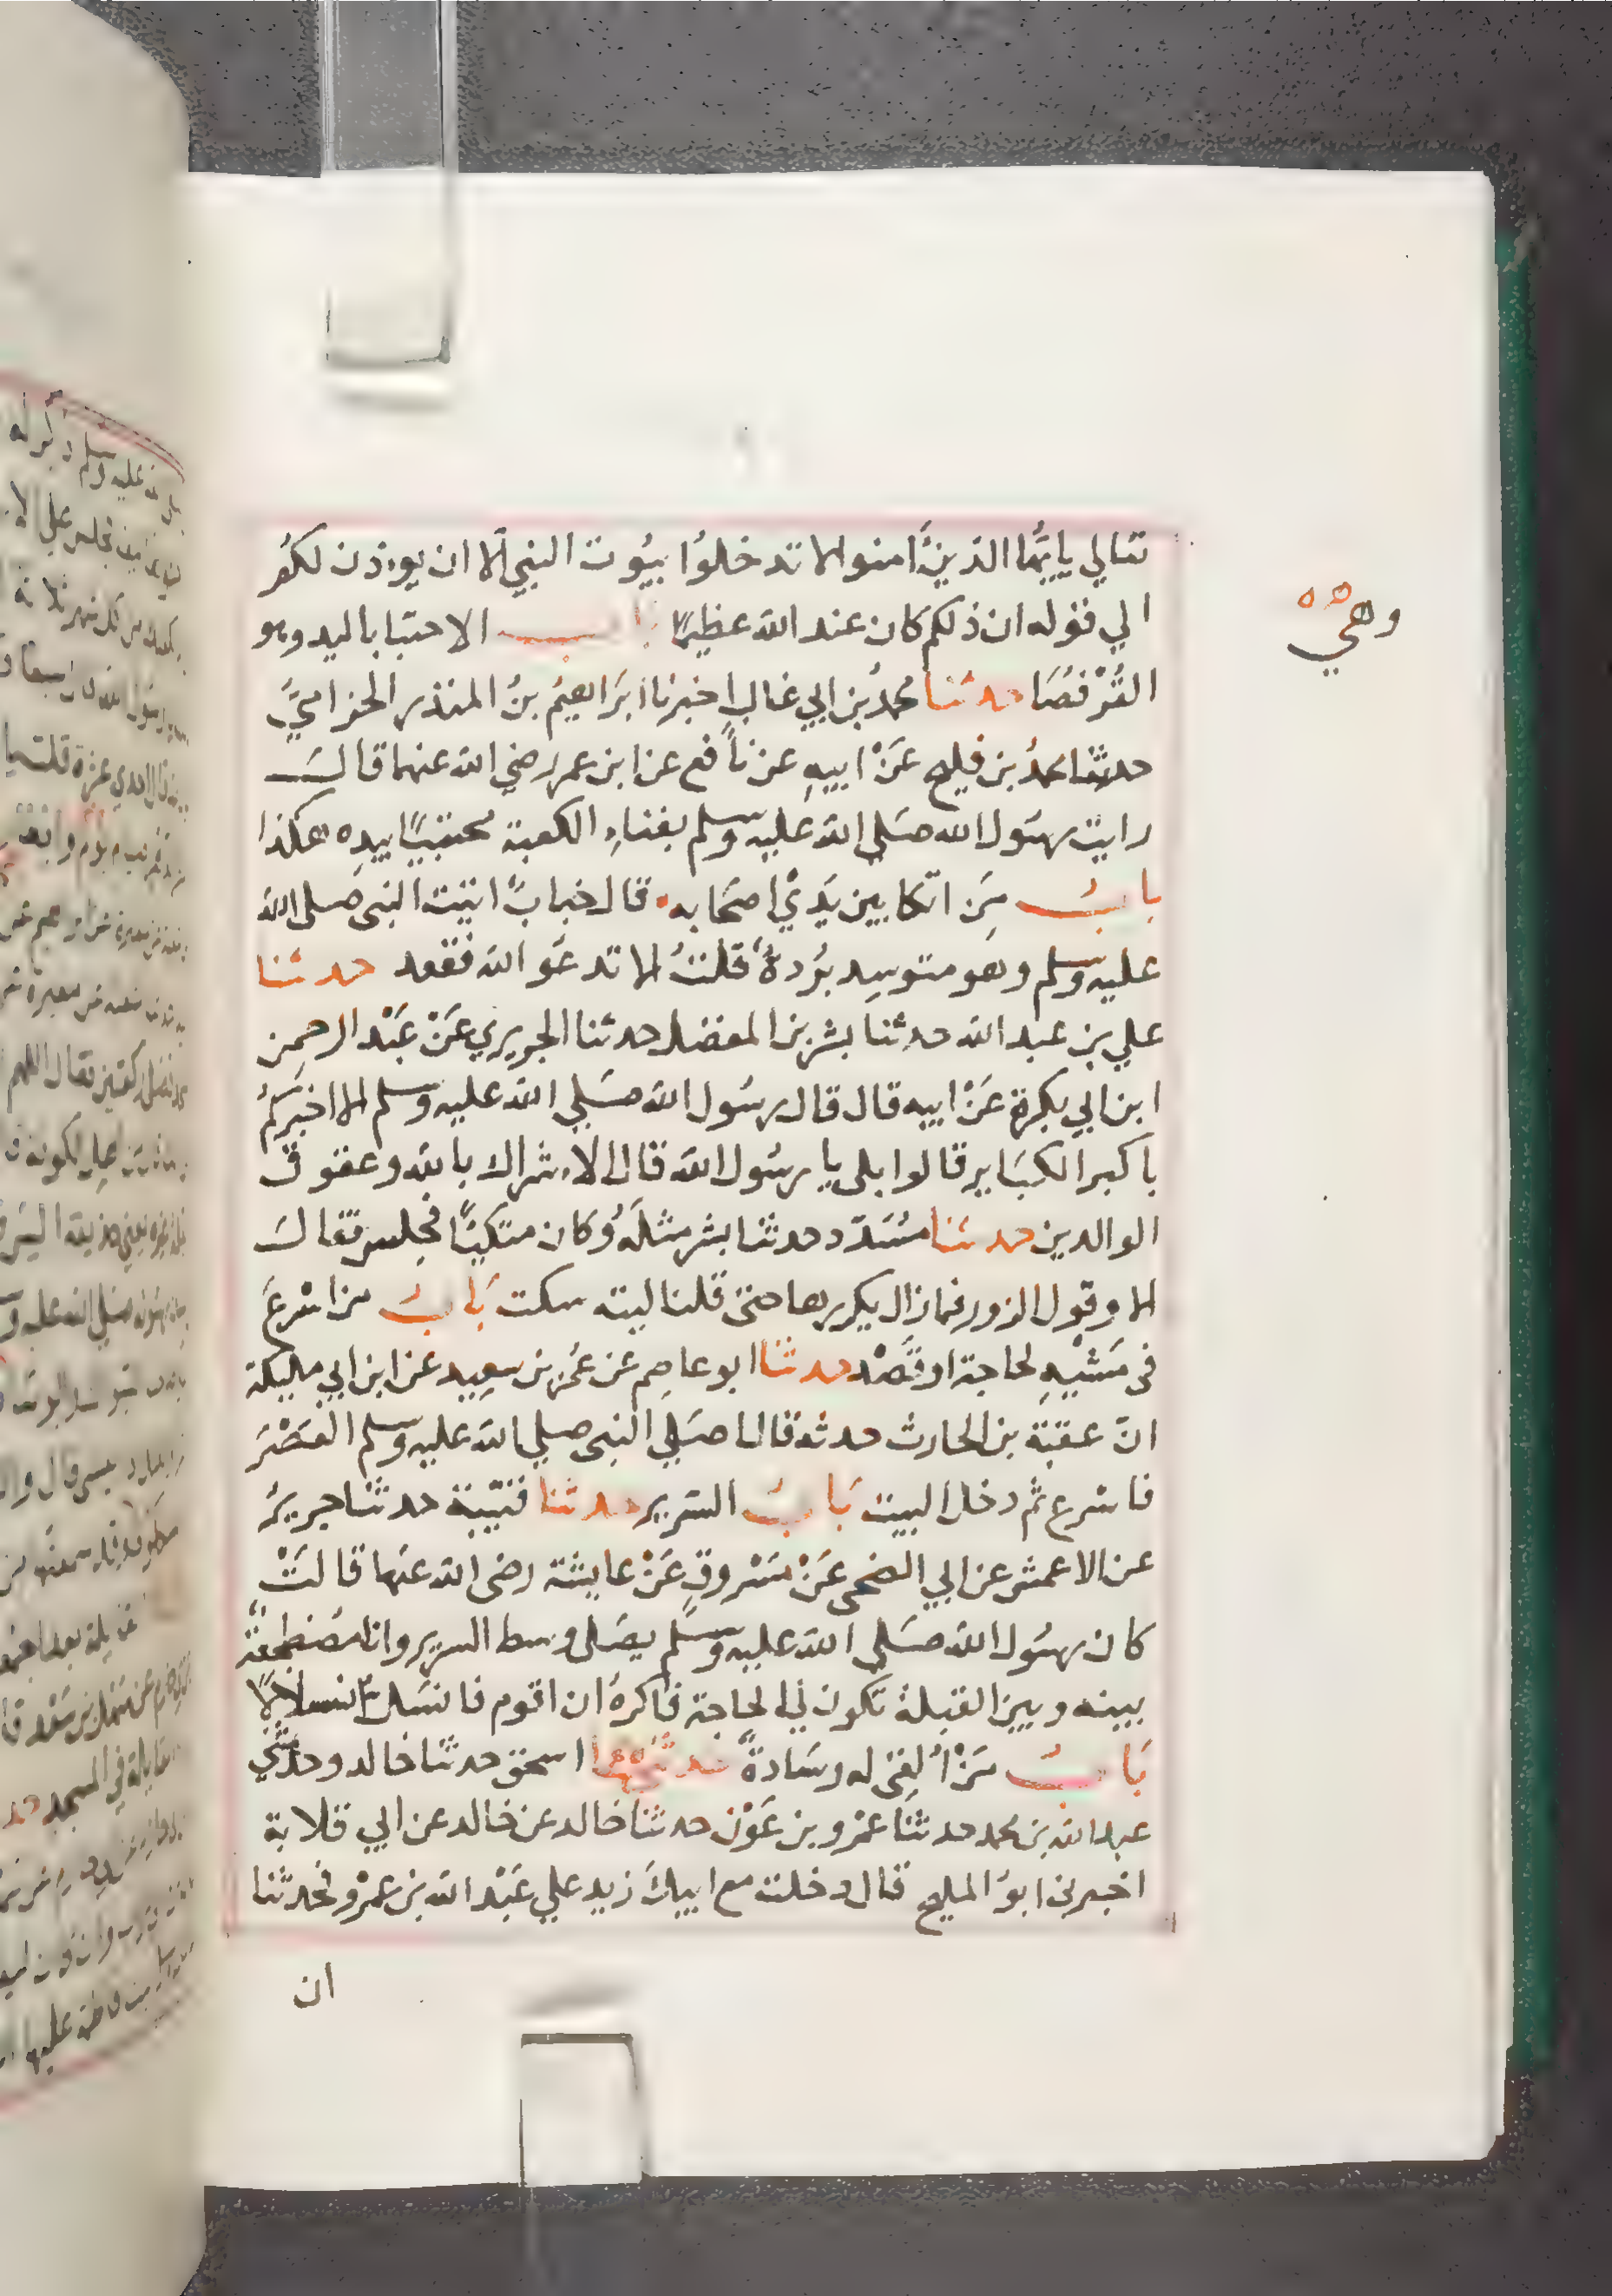 تعالي يايّها الذينَ اٰمنوا لا تدخلوُا بيُوت النبي الا ان يوءذن لكُم
الي قوله ان ذلكم كان عند الله عظيمًا باب الاحتبا باليد وهو
وهيْ
القُرْفُصَا حدثنا محمدُ بن ابي غالب اخبرنا ابرَاهيمُ بنُ المنذر الحزاميُّ
حدثنا محمدُ بن فليح عَنْ ابيهِ عن نافع عن ابن عمر رضي الله عنهما قالَ
رايت رسُول الله صَلي الله عليه وسلم بفناءِ الكعبة محتبيًا بيدِه هكذا
بابُ مَن اتكا بين يَدَيْ اصحَابه قال خبابٌ اتيت النبي صلى الله
عليه وسلم وهو متوسِد بُردةً قلتُ الا تدعُو الله فقعد حدثنا
علي بن عبد الله حدثنا بشر بن المفضل حدثنا الجريري عَنْ عَبْد الرحمن
ابن ابي بكرة عَنْ ابيه قال قال رسُول الله صَلي الله عليه وسلم الا اخبرَكُم
باكبر الكبَاير قالوا بلى يا رسُول الله قال الاءشراك بالله وعقوق
الوالدين حدثنا مسَُدّد حدثنا بشر مثلَهُ وكان متكيًا فجلس فقالَ
الا وقول الزور فما زال يكررها حتى قلنا ليته سكت بَابُ من اسْرعَ
في مَشْيِهِ لحاجة او قَصْد حدثنا ابو عاصِم عن عُمَر بن سعِيد عن ابن ابي مليكة
انّ عقبَة بن الحارث حدثه قال صَلي النبي صلي الله عليه وسلم العَصْرَ
فاسْرع ثم دخل البيت بَابُ السَرير حدثنا قتيَبة حدثنا جريرُ
عن الاعمش عن ابي الضحى عَنْ مَسْروقٍ عَنْ عايشة رضى الله عنَها قالتْ
كان رسُول الله صَلي الله عليه وسلم يصَلي وسط السرير وانا مضْطجعَةٌ
بينه وبين القبلة تكون لي الحاجة فاكرهُ ان اقوم فانسَلّ انسلالًا
بَابُ مَنْ اُلقِىَ له وسَادةٌ حدثنا اسحق حدثنا خالد وحدَّثني
عبد الله بن محمد حدثنا عمْرو بن عَوْن حدثنا خالد عن خالد عن ابي قلابة
اخبرني ابوُ المليح قال دخلت مع ابيكَ زيد علي عَبْد الله بن عمْرو فحدثنا
ان